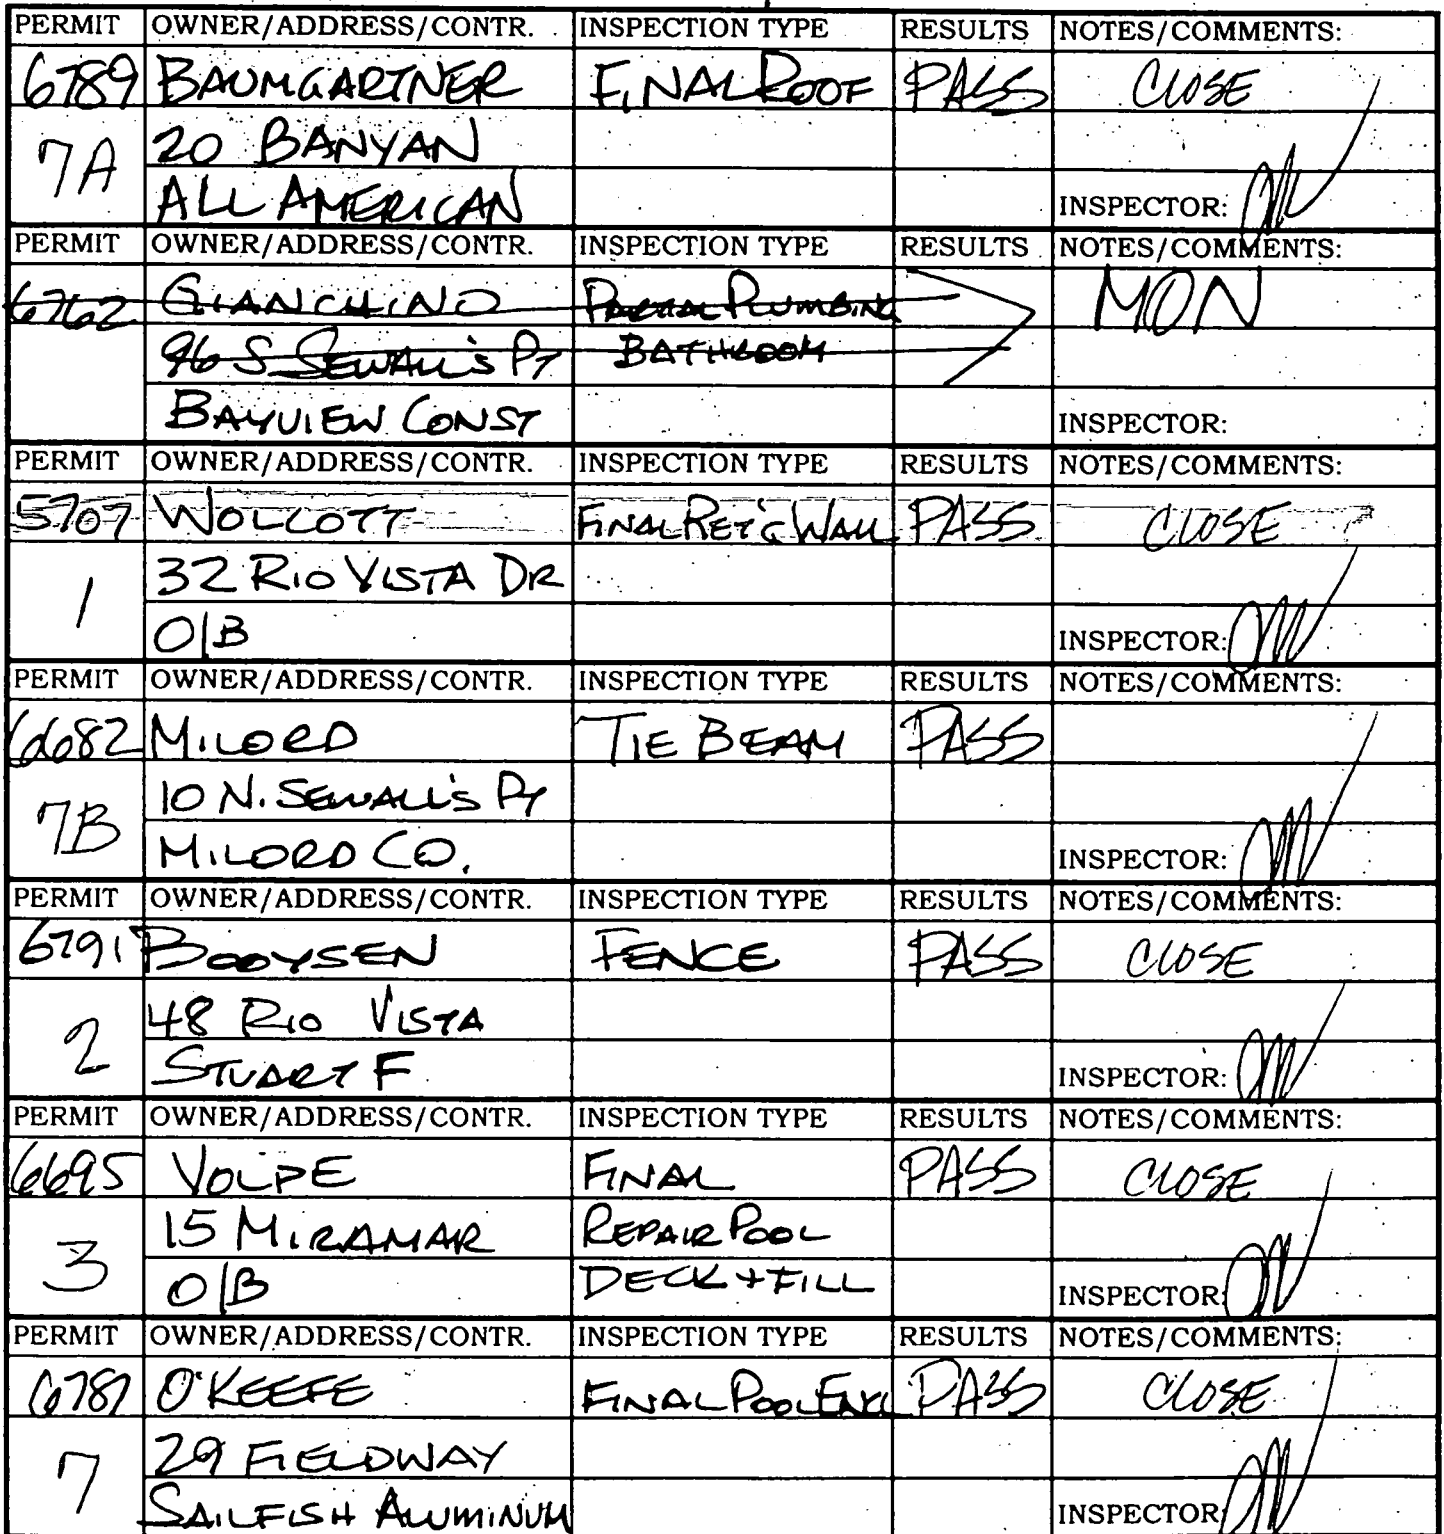 PERMIT OWNER/ADDRESS/CONTR. INSPECTION TYPE RESULTS NOTES/COMMENTS:
6789 BAUMGARTNER FINAL ROOF PASS CLOSE
7A 20 BANYAN
ALL AMERICAN INSPECTOR:
PERMIT OWNER/ADDRESS/CONTR. INSPECTION TYPE RESULTS NOTES/COMMENTS:
6762 GIANCHINO PARTIAL PLUMBING MON
96 S. SEWALL'S PT BATHROOM
BAYVIEW CONST INSPECTOR:
PERMIT OWNER/ADDRESS/CONTR. INSPECTION TYPE RESULTS NOTES/COMMENTS:
5707 WOLCOTT FINAL RET'G WALL PASS CLOSE
1 32 RIO VISTA DR
O/B INSPECTOR:
PERMIT OWNER/ADDRESS/CONTR. INSPECTION TYPE RESULTS NOTES/COMMENTS:
6682 MILORD TIE BEAM PASS
7B 10 N. SEWALL'S PT
MILORD CO. INSPECTOR:
PERMIT OWNER/ADDRESS/CONTR. INSPECTION TYPE RESULTS NOTES/COMMENTS:
6791 BOOYSEN FENCE PASS CLOSE
2 48 RIO VISTA
STUART F INSPECTOR:
PERMIT OWNER/ADDRESS/CONTR. INSPECTION TYPE RESULTS NOTES/COMMENTS:
6695 VOLPE FINAL PASS CLOSE
3 15 MIRAMAR REPAIR POOL
O/B DECK + FILL INSPECTOR:
PERMIT OWNER/ADDRESS/CONTR. INSPECTION TYPE RESULTS NOTES/COMMENTS:
6781 O'KEEFE FINAL POOL ENCL PASS CLOSE
7 29 FIELDWAY
SAILFISH ALUMINUM INSPECTOR: